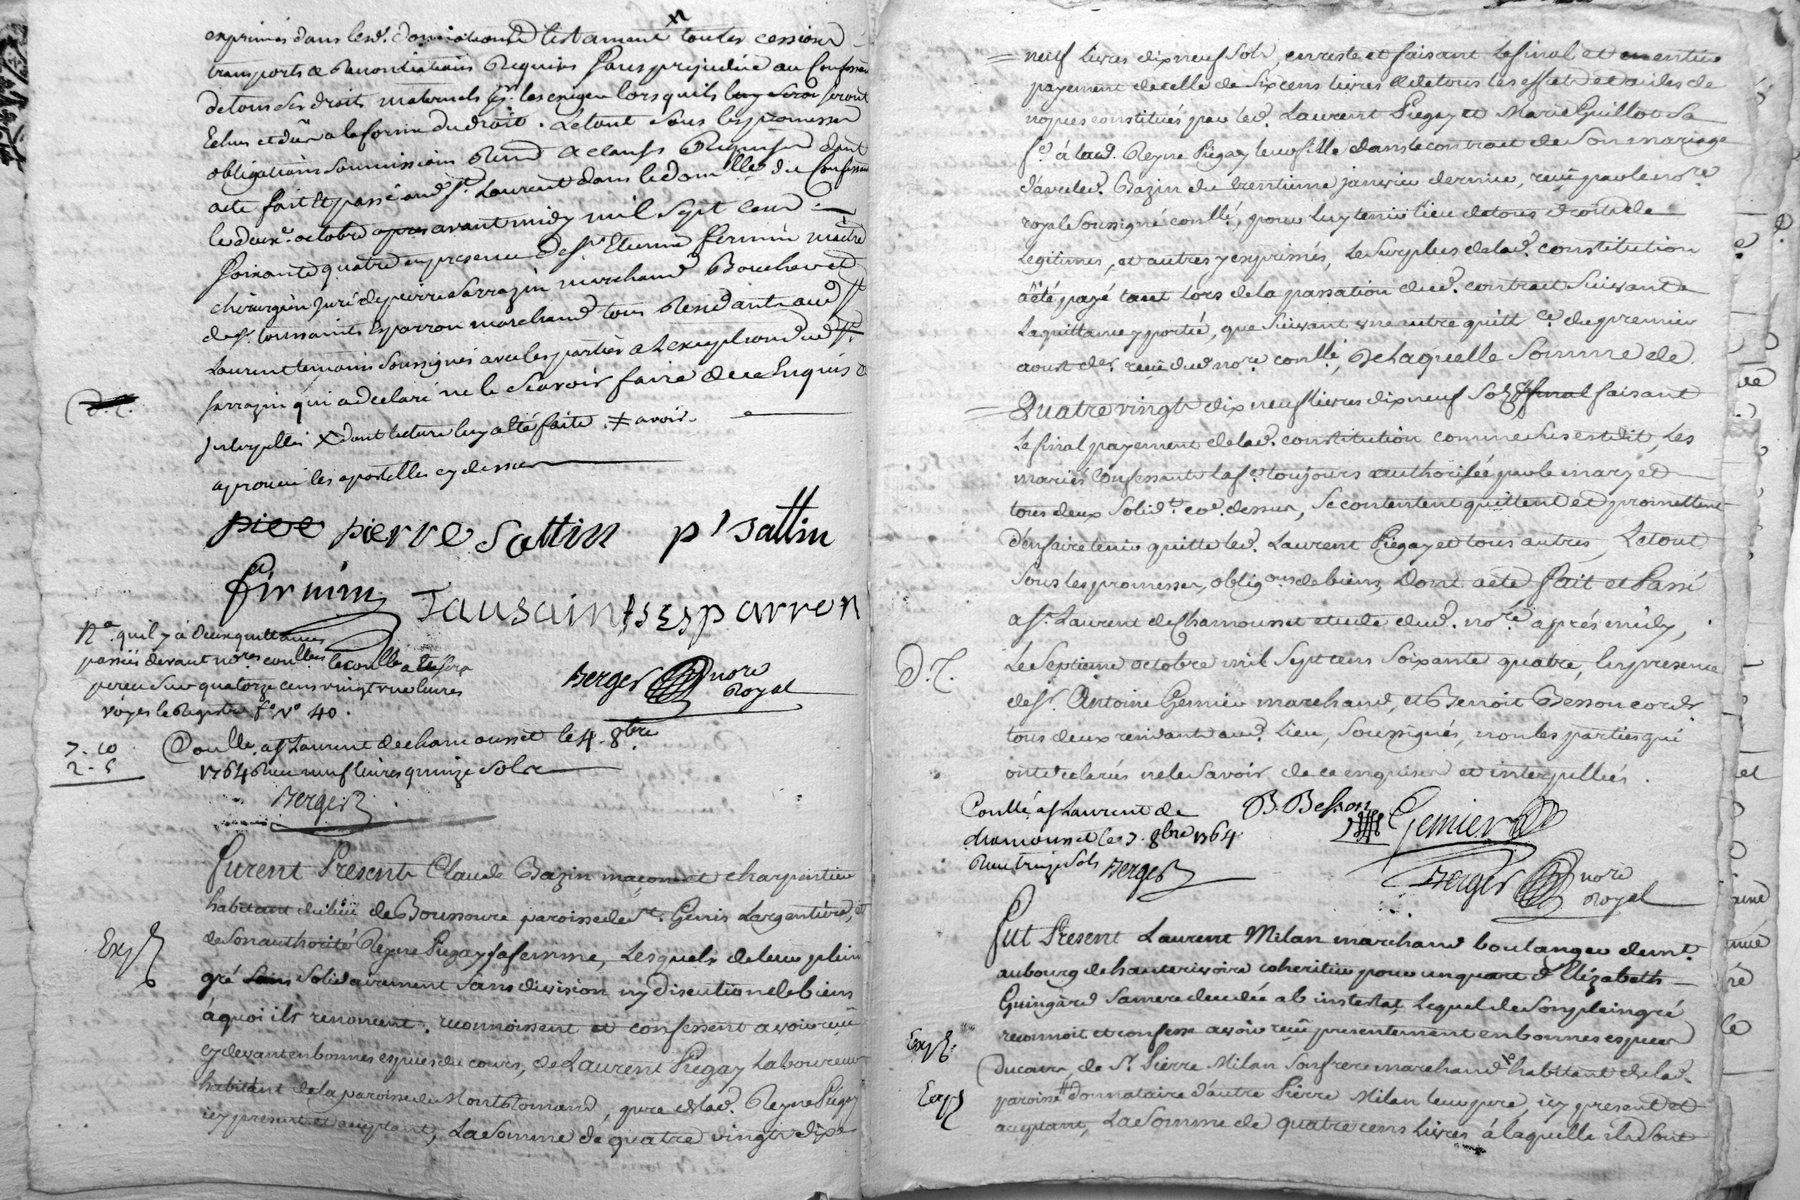 exprimés dans lesd. donnations & testament toutes cessions
transports & renontiations requises sans prejudice au Confessant
de tous ses droits maternels pr. les exiger lorsqu'ils luy seront
Echus et dus a la forme du droit. Le tout sous les promesses
obligations soumissions & clauses requises dont
acte fait et passé aud. St. Laurent dans le domicille du Confessant
le deuxe. octobre apres avant midy mil sept cens
soixante quatre en presence de sr. Etienne firmin maitre
chirurgien juré de pierre Sarrazin marchand Boucher et
de sr. toussaints Esparron marchand tous residants aud.
Laurent temoins soussignés avec les parties a l'exception dud.
sarrazin qui a declaré ne le scavoir faire de ce enquis &
interpellé X dont lecture luy a été faite. ≠ avoir.
aprouvé les apostilles cy dessus
piere pierre Sattin p' Sattin
firmin Tausaints Esparron
Na. qu'il y à deux quittances
passées devant nores
perçu sur quatorze cens vingt une livres
voyés le Registre fo. No 40.
Berger nore
Royal
7 - 10
2 - 5
Coullé a St Laurent de chamousset le 4. 8bre
1764 Reçu neuf livres quinze sols
Berger
furent Presents Claude Bazin maçon et charpentier
habitant du lieu de Boussoure paroisse de St. Genis Largentiere, et
de son authorité Reyne Piegay sa femme, Lesquels de leur plein
Exp
gré sans solidairement sans division ny discution de biens
à quoi ils renoncent. reconnoissent et confessent avoir reçu
cy devant en bonnes especes du cours, de Laurent Piegay Laboureur
habitant de la paroisse de Montromand, pere de lad. Reyne Piegay
icy present et acceptant, La somme de quatre vingt dix
neuf livres dix neuf sols, en reste et faisant le final et entier
payement de celle de six cens livres & de tous les effets et aides de
nopces constitués par led. Laurent Piegay et Marie Guillot sa
fe. à lad. Reyne Piegay leur fille dans le contrat de son mariage
d'avec led. Bazin du trentieme janvier dernier, reçu par le nore.
royal soussigné coullé, pour luy tenir lieu de tous droits de
Legitimes, et autres y exprimés, le surplus de lad. constitution
a été payé tant lors de la passation dud. contrat suivant
La quittance y portée, que suivant une autre quittce. du premier
aoust der. reçue dud. nore. coullé, De laquelle somme de
Quatre vingt dix neuf livres dix neuf sols final faisant
Le final payement de lad. constitution comme sus est dit, Les
mariés Confessants la fe. toujours authorisée par le mary et
tous deux solidt. coe. dessus, se contentent quittent et promettent
d'en faire tenir quitte led. Laurent Piegay et tous autres, Le tout
sous les promesses, obligons. de biens, Dont acte fait et Passé
a St. Laurent de Chamousset etude dud. nore. après midy,
D.C.
Le Septieme octobre mil sept cens soixante quatre, En presence
de sr. Antoine Gemier marchand, et Benoit Besson cordr.
tous deux residants aud. Lieu, soussignés, non les parties qui
ont declarés ne le savoir de ce enquises et interpellées.
Coullé a St Laurent de
chamousset le 7. 8bre 1764
Reçu treize sols Berger
B. Besson Gemier
Berger nore
Royal
Fut Present Laurent Milan marchand boulanger demt.
au bourg de hauterivoire coheritier pour un quart d'Elizabeth
Guingard sa mere decedée ab intestat, Lequel de son plein gré
reconnoit et confesse avoir reçu presentement en bonnes especes
Exp.
Ducours, de Sr. Pierre Milan son frere marchand habitant de lad.
Exp
paroisse donnataire d'autre Pierre Milan leur pere, icy present et
acceptant, La somme de quatre cens livres à laquelle ils se sont